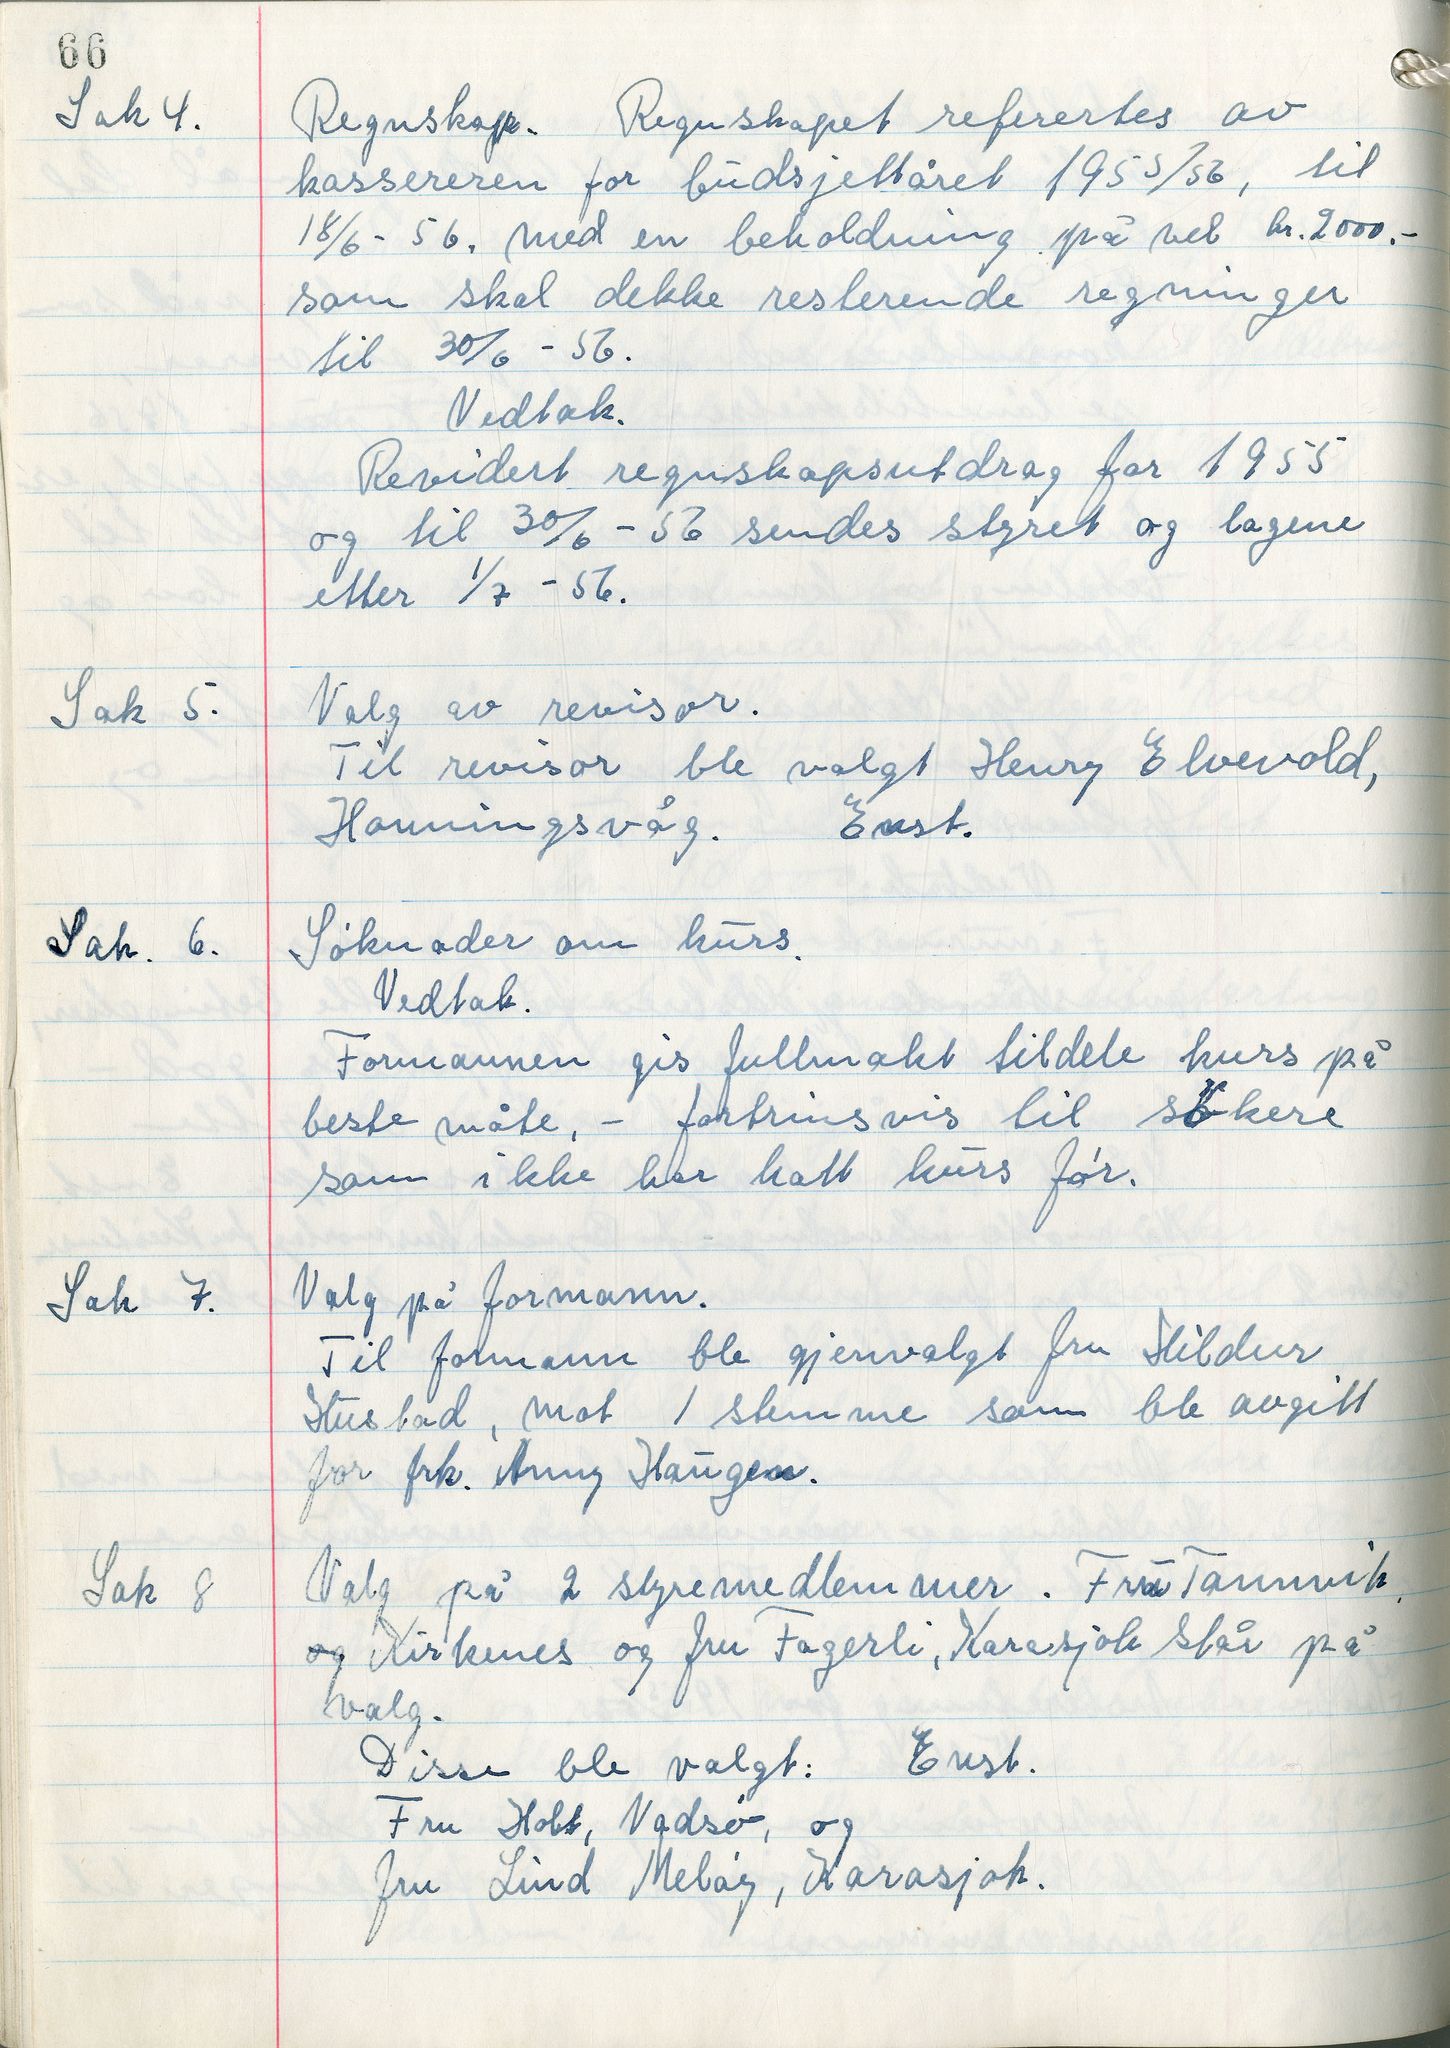 66
Sak 4. Regnskap. Regnskapet referertes av
kassereren for budsjettåret 1955/56, til
18/6 - 56. med en beholdning på vel kr. 2000.-
som skal dekke resterende regninger
til 30/6 - 56.
Vedtak.
Revidert regnskapsutdrag for 1955
og til 30/6 - 56 sendes styret og lagene
etter 1/7 - 56.
Sak 5. Valg av revisor.
Til revisor ble valgt Henry Elvevold,
Honningsvåg. Enst.
Sak. 6. Søknader om kurs.
Vedtak.
Formannen gis fullmakt tildele kurs på
beste måte, - fortrinsvis til søkere
som ikke har hatt kurs før.
Sak 7. Valg på formann.
Til formann ble gjenvalgt fru Hildur
Hustad, mot 1 stemme som ble avgitt
for frk. Anny Haugen.
Sak 8 Valg på 2 styremedlemmer. Fru Tannvik,
og Kirkenes og fru Fagerli, Karasjok står på
valg.
Disse ble valgt: Enst.
Fru Holt, Vadsø, og
fru Lind Meløy, Karasjok.